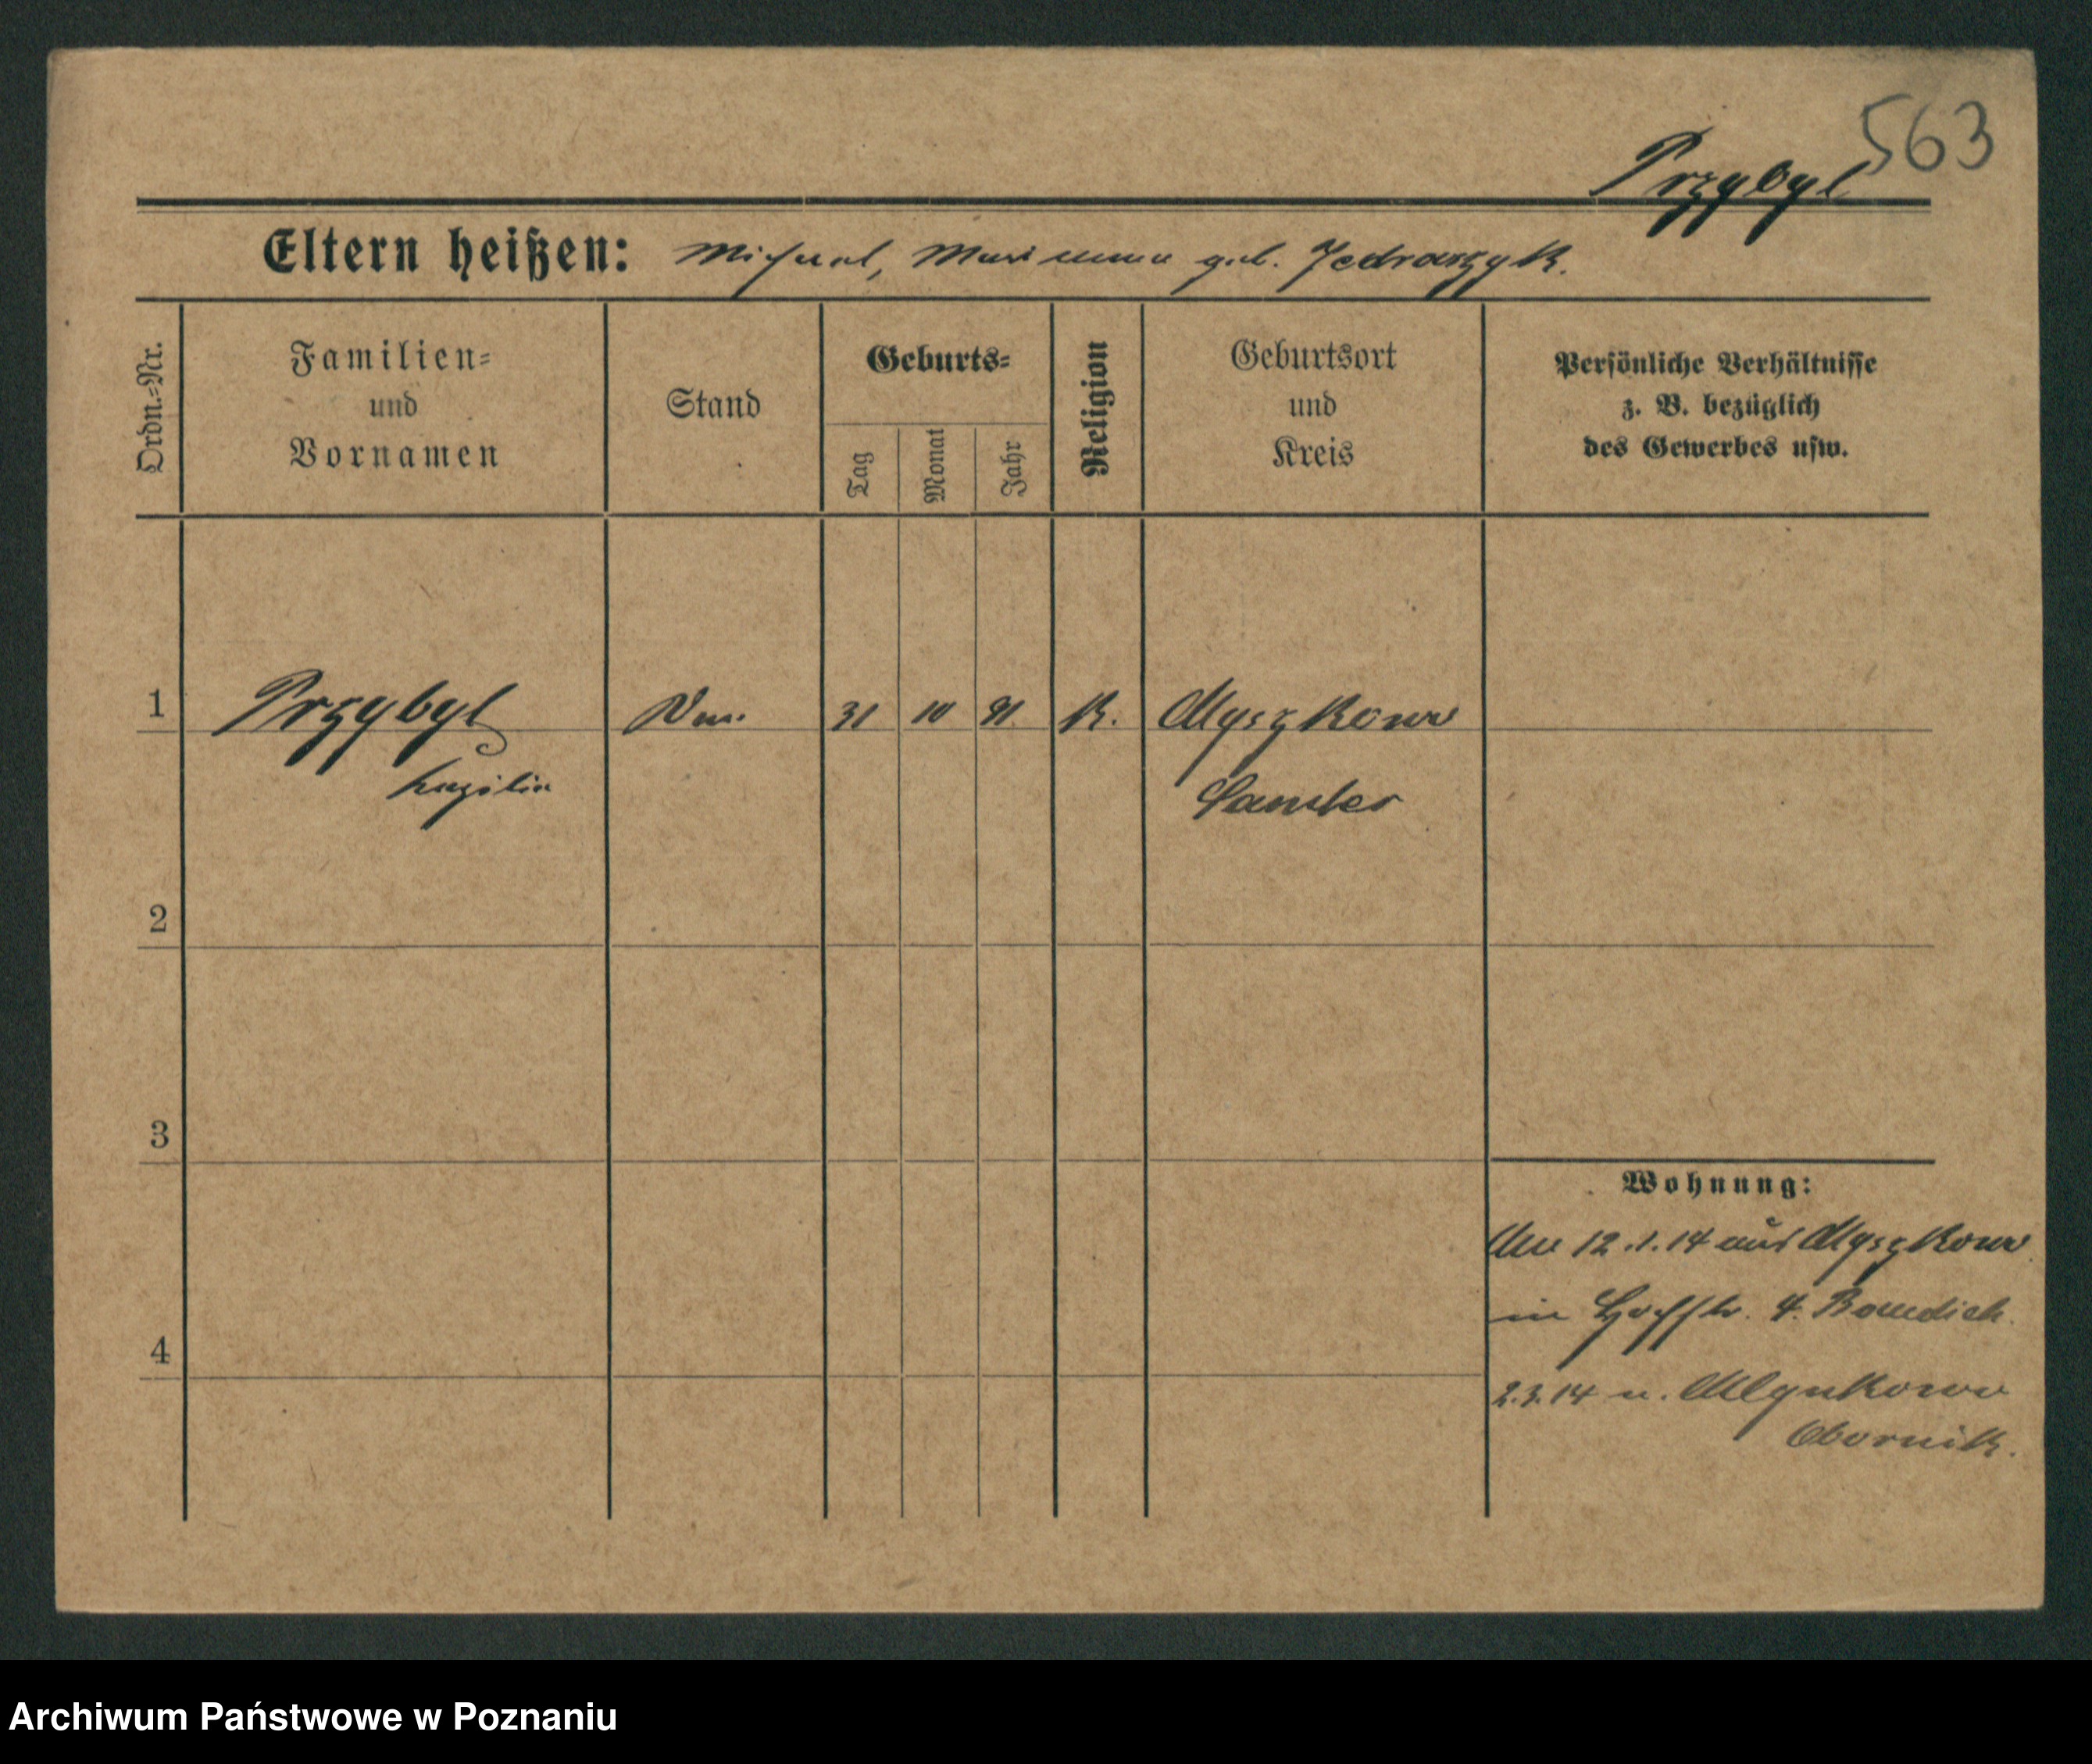 563
Przybyl
Eltern heißen: Michael, Marianna geb. Jedraszyk.
Ordn.-Nr.
Familien-
und
Vornamen
Stand
Geburts-
Tag
Monat
Jahr
Religion
Geburtsort
und
Kreis
Persönliche Verhältnisse
z. B. bezüglich
des Gewerbes usw.
1 Przybyl 31 10 91. K. Myszkowo
Cäzilia
Samter
2
3
Wohnung:
12.1.14 aus Myszkowo
in 4.
4
2.3.14 n. Mlynkowo
Obornik.
Archiwum Państwowe w Poznaniu